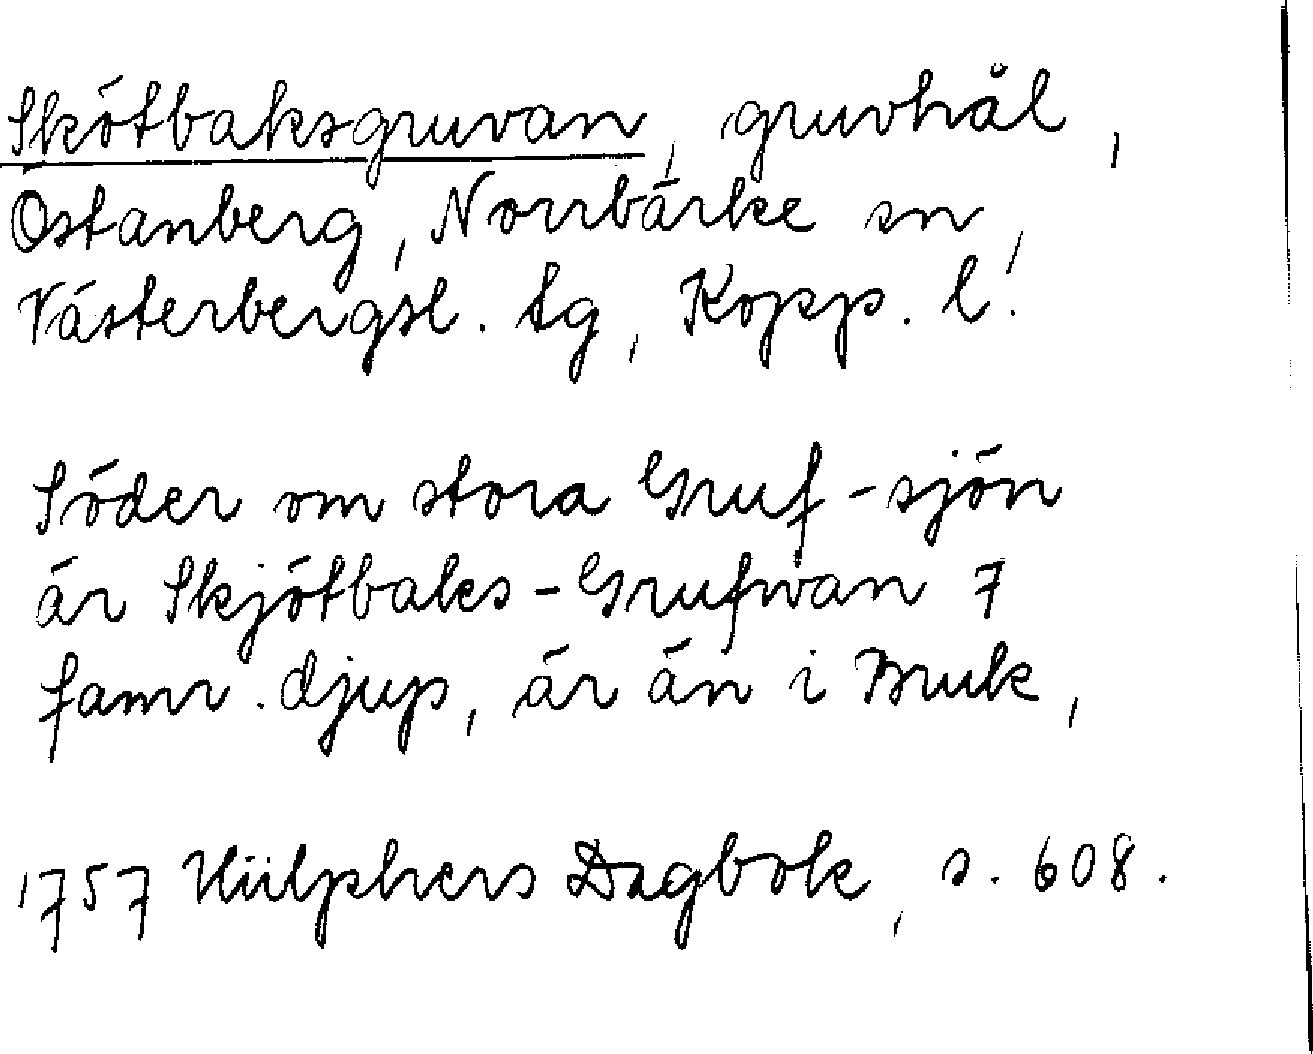 Skötbaksgruvan, gruvhål,
Östanberg, Norrbärke sn,
Västerbergsl. tg, Kopp. l.
Söder om stora Gruf-sjön
är Skjötbaks-Grufwan 7
famr. djup, är än i Bruk,
1757 Hülphers Dagbok, s. 608.